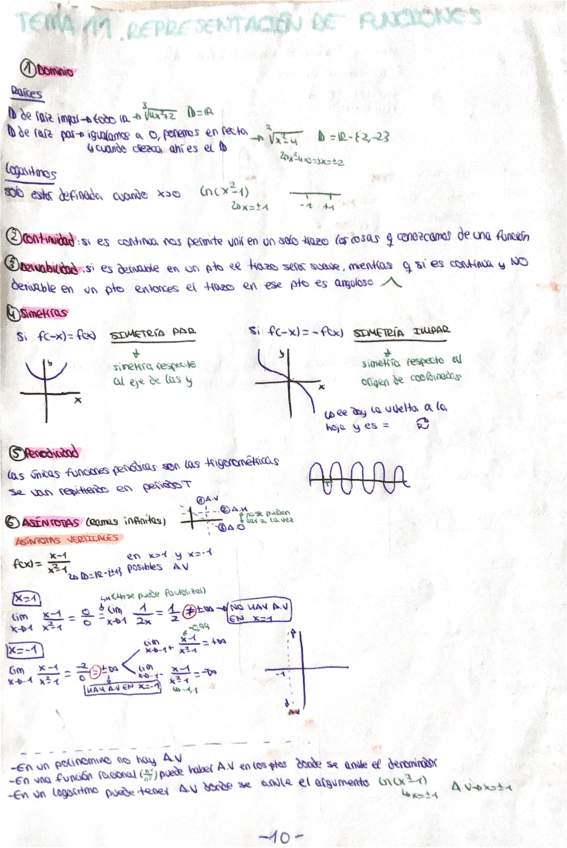 TEMA 11. REPRESENTACIÓN DE FUNCIONES
① Dominio
Raíces
D de raíz impar → todo ℝ → ∛(4x+2) D=ℝ
D de raíz par → igualamos a 0, ponemos en recta → √(x²-4) D=ℝ-{2,-2}
y cuando crezca ahí es el D
x²-4=0 → x=±2
Logaritmos
solo están definida cuando x>0 ln(x²-1)
→ x=±1 -1 +1
② Continuidad: si es continua nos permite unir en un solo trazo las cosas q conozcamos de una función
③ Derivabilidad: si es derivable en un pto el trazo será suave, mientras q si es continua y NO
derivable en un pto entonces el trazo en ese pto es anguloso
④ Simetrías
Si f(-x)=f(x) SIMETRÍA PAR
simetría respecto
al eje de las y
Si f(-x)=-f(x) SIMETRÍA IMPAR
simetría respecto al
origen de coordenadas
y x
y x
le doy la vuelta a la
hoja y es =
⑤ Periodicidad
Las únicas funciones periódicas son las trigonométricas
se van repitiendo en periodo T
⑥ ASÍNTOTAS (ramas infinitas)
① A.V
② A.H
③ A.O
no se pueden
dar a la vez
ASÍNTOTAS VERTICALES
f(x)= (x-1)/(x²-1) en x=1 y x=-1
D=ℝ-{±1} posibles A.V
x=1
lim x→1 (x-1)/(x²-1) = 0/0 = lim x→1 1/2x = 1/2 ≠ ±∞ → NO HAY A.V
EN x=1
x=-1
lim x→-1 (x-1)/(x²-1) = -2/0 = ±∞
lim x→-1+ (x-1)/(x²-1) = +∞
-0,99
lim x→-1- (x-1)/(x²-1) = -∞
-1,1
HAY A.V EN x=-1
-1
A.V
-En un polinomio no hay A.V
-En una función racional puede haber A.V en los ptos donde se anule el denominador
-En un logaritmo puede tener A.V donde se anula el argumento ln(x²-1) A.V → x=±1
→ x=±1
-10-